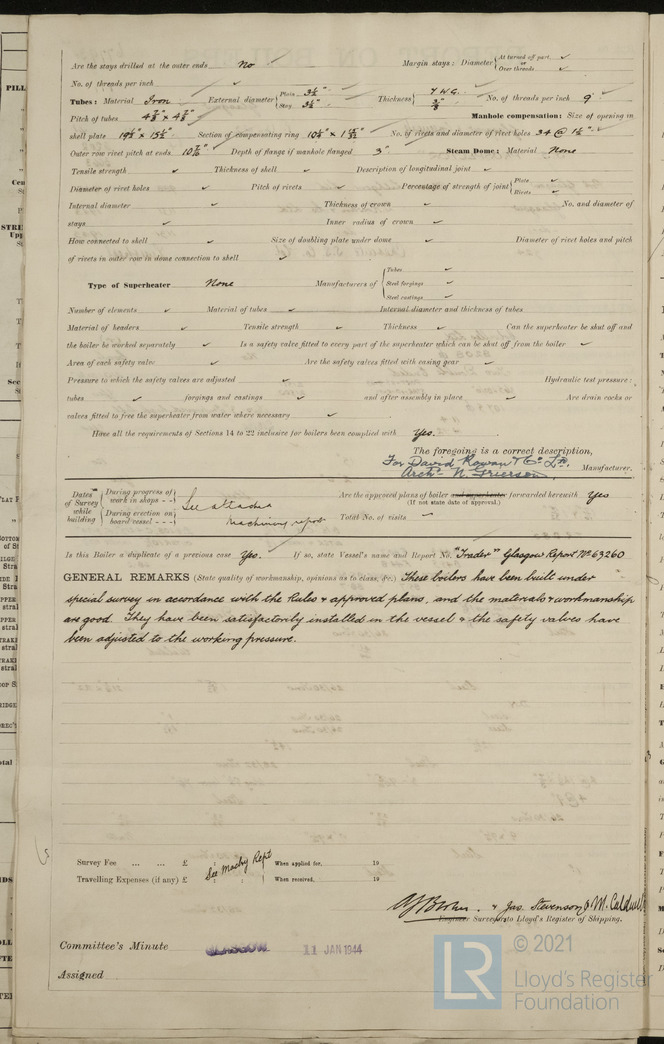 Are the stays drilled at the outer ends No Margin stays: Diameter { At turned off part ✓ or Over threads ✓
No. of threads per inch ✓
Tubes: Material Iron External diameter { Plain 3½" Stay 3½" Thickness { 7 W.G. No. of threads per inch 9
Pitch of tubes Manhole compensation: Size of opening in
shell plate 19½" x 15½" Section of compensating ring No. of rivets and diameter of rivet holes 34 @
Outer row rivet pitch at ends Depth of flange if manhole flanged 3" Steam Dome: Material None
Tensile strength ✓ Thickness of shell ✓ Description of longitudinal joint ✓
Diameter of rivet holes ✓ Pitch of rivets ✓ Percentage of strength of joint { Plate ✓ Rivets ✓
Internal diameter ✓ Thickness of crown ✓ No. and diameter of
stays ✓ Inner radius of crown ✓
How connected to shell ✓ Size of doubling plate under dome ✓ Diameter of rivet holes and pitch
of rivets in outer row in dome connection to shell ✓
Type of Superheater None Manufacturers of { Tubes ✓ Steel forgings ✓ Steel castings ✓
Number of elements ✓ Material of tubes ✓ Internal diameter and thickness of tubes ✓
Material of headers ✓ Tensile strength ✓ Thickness ✓ Can the superheater be shut off and
the boiler be worked separately ✓ Is a safety valve fitted to every part of the superheater which can be shut off from the boiler ✓
Area of each safety valve ✓ Are the safety valves fitted with easing gear ✓
Pressure to which the safety valves are adjusted ✓ Hydraulic test pressure:
tubes ✓ forgings and castings ✓ and after assembly in place ✓ Are drain cocks or
valves fitted to free the superheater from water where necessary ✓
Have all the requirements of Sections 14 to 22 inclusive for boilers been complied with Yes.
The foregoing is a correct description,
For David Rowan & Co. Ltd.
Arch. N. Grierson Manufacturer.
Dates of Survey while building { During progress of work in shops - - During erection on board vessel - - - } See attached machinery report Are the approved plans of boiler and superheater forwarded herewith Yes
(If not state date of approval.)
Total No. of visits
Is this Boiler a duplicate of a previous case Yes. If so, state Vessel's name and Report No. "Trader" Glasgow Report No 69260
GENERAL REMARKS (State quality of workmanship, opinions as to class, &c.) These boilers have been built under
special survey in accordance with the Rules & approved plans, and the materials & workmanship
are good. They have been satisfactorily installed in the vessel & the safety valves have
been adjusted to the working pressure.
Survey Fee ... ... £ : : When applied for, 19
See Machy Rept
Travelling Expenses (if any) £ : : When received, 19
& Jas. Stevenson & M. Caldwell
Engineer Surveyors to Lloyd's Register of Shipping.
Committee's Minute GLASGOW 11 JAN 1944
Assigned
LR © 2021
Lloyd's Register
Foundation